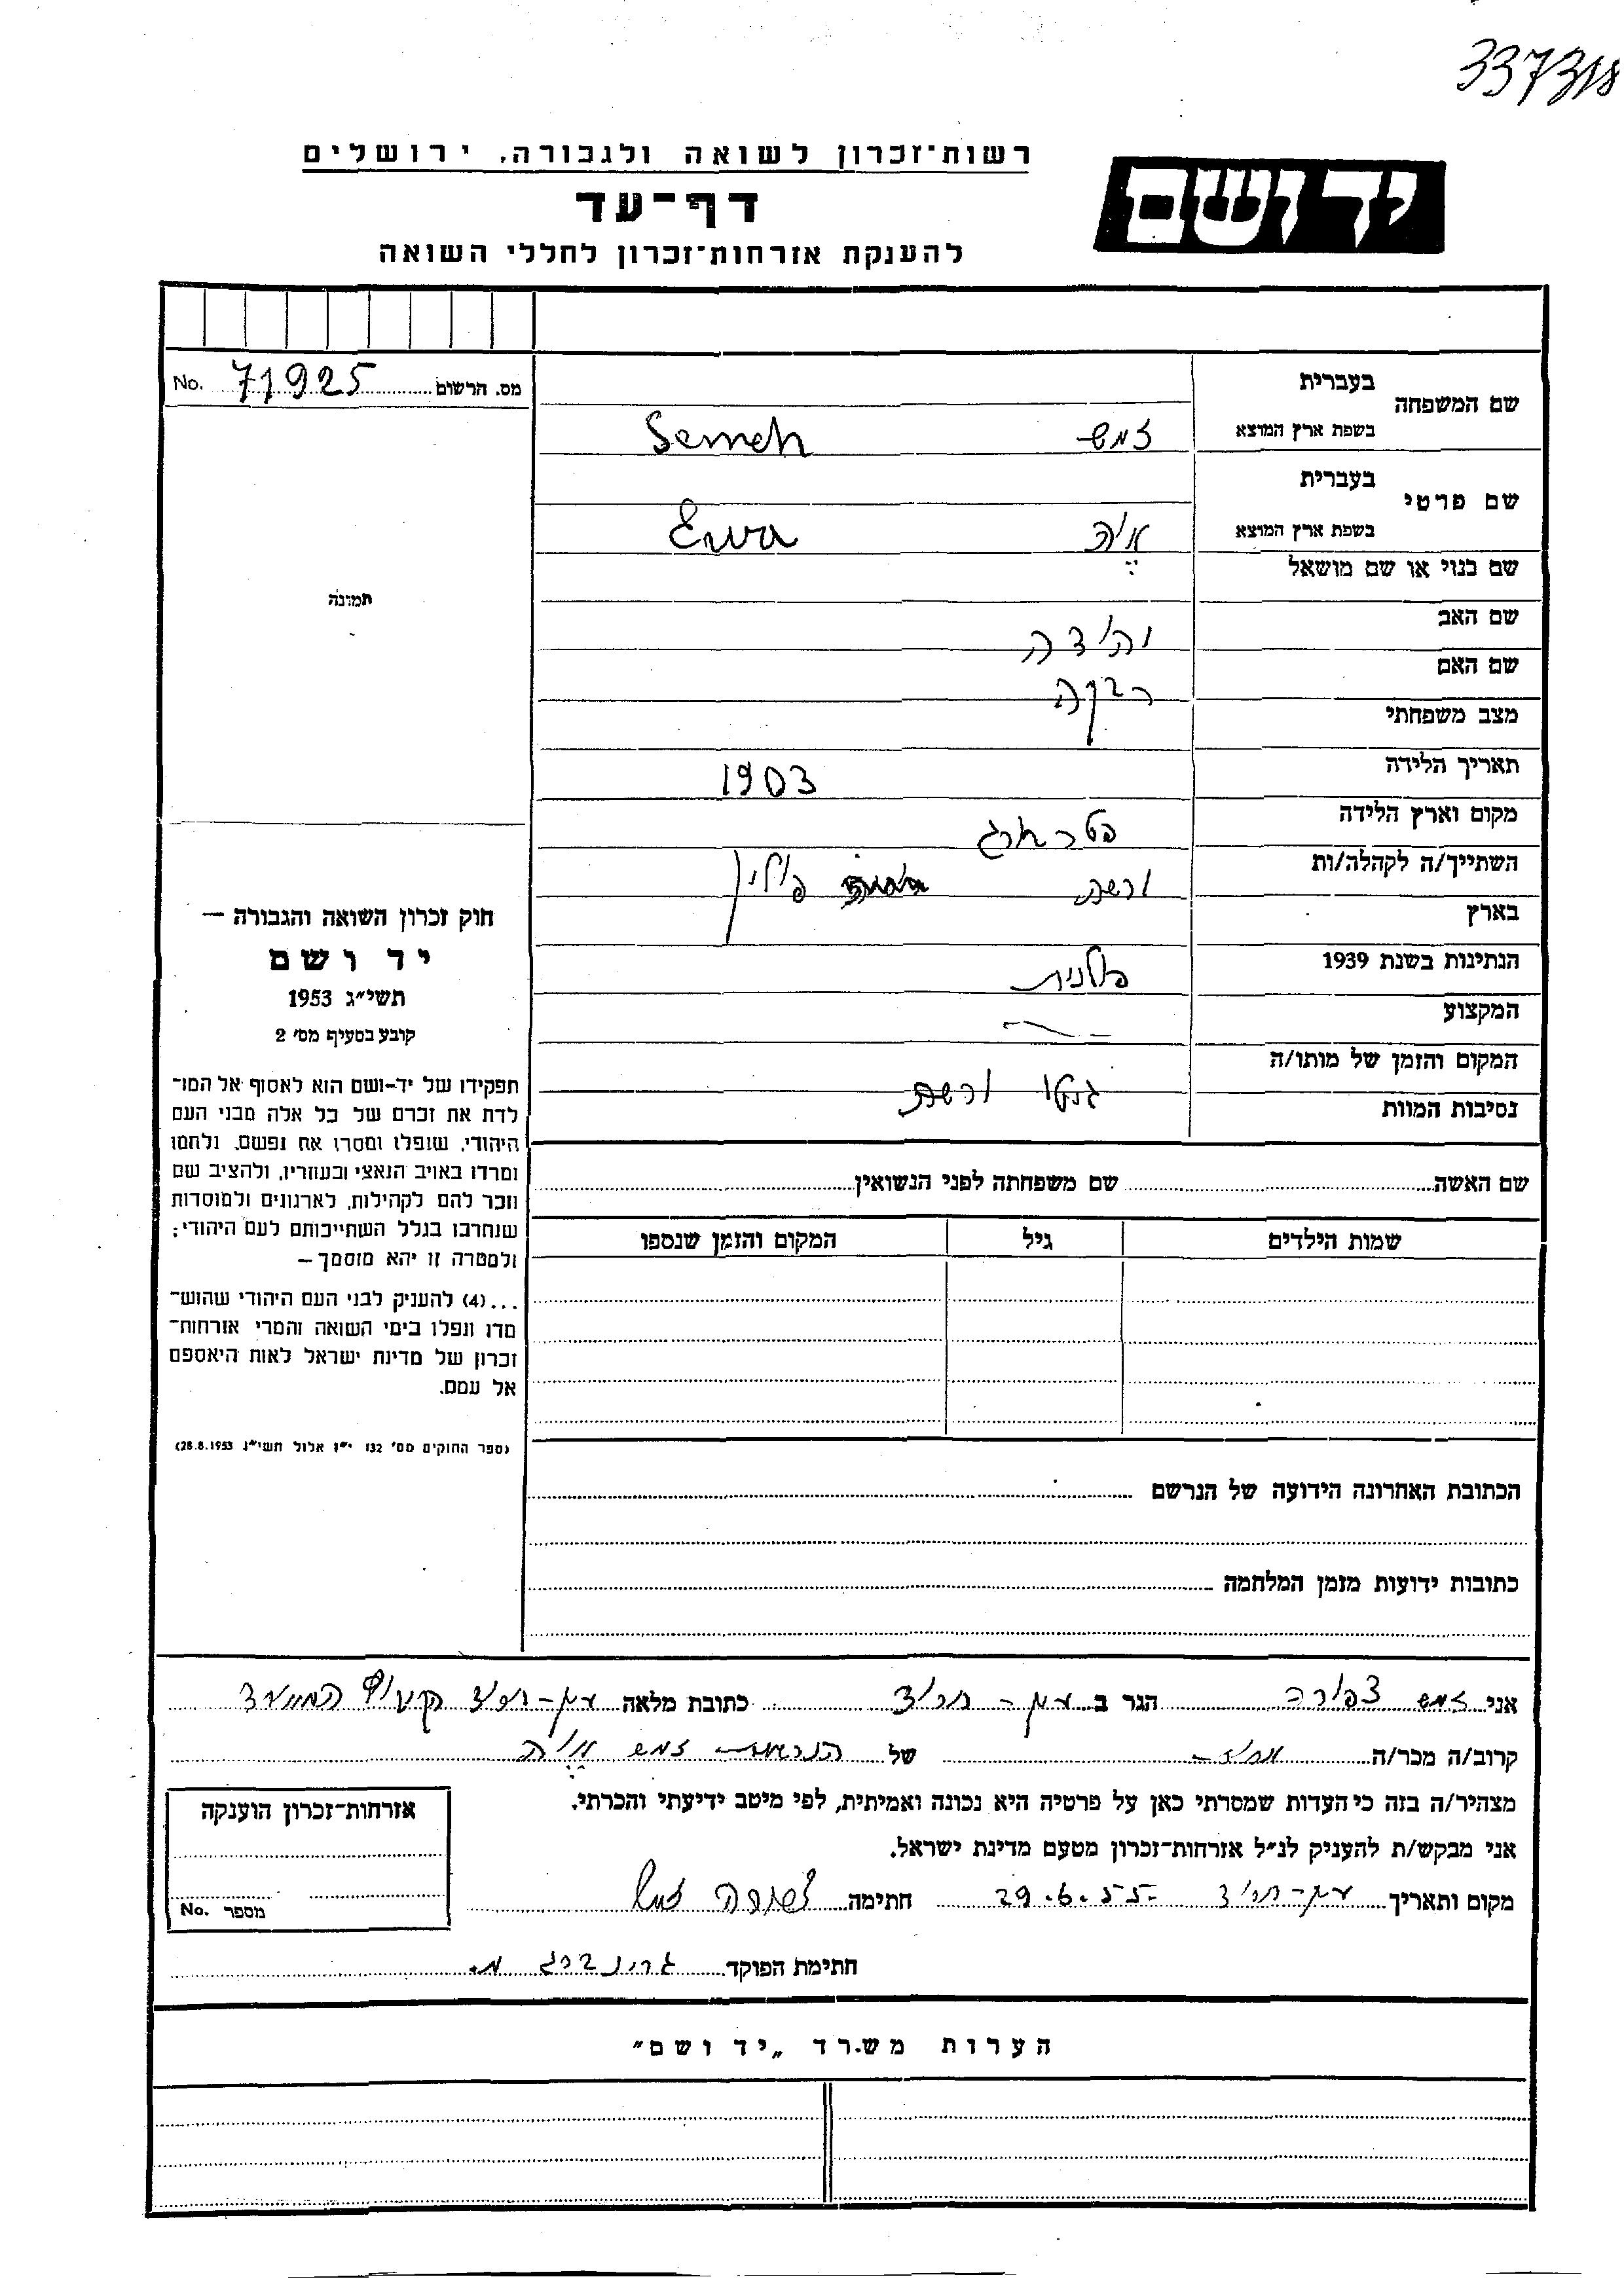 337318
רשות־זכרון לשואה ולגבורה, ירושלים
יד ושם
דף־עד
להענקת אזרחות־זכרון לחללי השואה
מס. הרשום 71925 No.
שם המשפחה
בעברית
בשפת ארץ המוצא
זמש Semeh
שם פרטי
בעברית
בשפת ארץ המוצא
Ewa
שם כנוי או שם מושאל
תמונה
שם האב
יהודה
שם האם
רבקה
מצב משפחתי
תאריך הלידה 1903
מקום וארץ הלידה
השתייך/ה לקהלה/ות ורשה פולין
בארץ
הנתינות בשנת 1939 פולנית
המקצוע —
המקום והזמן של מותו/ה
גטו ורשה
נסיבות המוות
חוק זכרון השואה והגבורה —
יד ושם
תשי״ג 1953
קובע בסעיף מס׳ 2
תפקידו של יד-ושם הוא לאסוף אל המו־
לדת את זכרם של כל אלה מבני העם
היהודי, שנפלו ומסרו את נפשם, נלחמו
ומרדו באויב הנאצי ובעוזריו, ולהציב שם
וזכר להם לקהילות, לארגונים ולמוסדות
שנחרבו בגלל השתייכותם לעם היהודי;
ולמטרה זו יהא מוסמך —
...(4) להעניק לבני העם היהודי שהוש־
מדו ונפלו בימי השואה והמרי אזרחות־
זכרון של מדינת ישראל לאות היאספם
אל עמם.
(ספר החוקים מס׳ 132 י״ז אלול תשי״ג 28.8.1953)
שם האשה שם משפחתה לפני הנשואין
שמות הילדים גיל המקום והזמן שנספו
הכתובת האחרונה הידועה של הנרשם
כתובות ידועות מזמן המלחמה
אני זמש צפורה הגר ב עין-חרוד כתובת מלאה עין-חרוד הקבוץ המאוחד
קרוב/ה מכר/ה של
מצהיר/ה בזה כי העדות שמסרתי כאן על פרטיה היא נכונה ואמיתית, לפי מיטב ידיעתי והכרתי.
אני מבקש/ת להעניק לנ״ל אזרחות־זכרון מטעם מדינת ישראל.
מקום ותאריך עין-חרוד 29.6.55 חתימה צפורה זמש
אזרחות־זכרון הוענקה
מספר No.
חתימת הפוקד גרינברג מ.
הערות משרד „יד ושם״